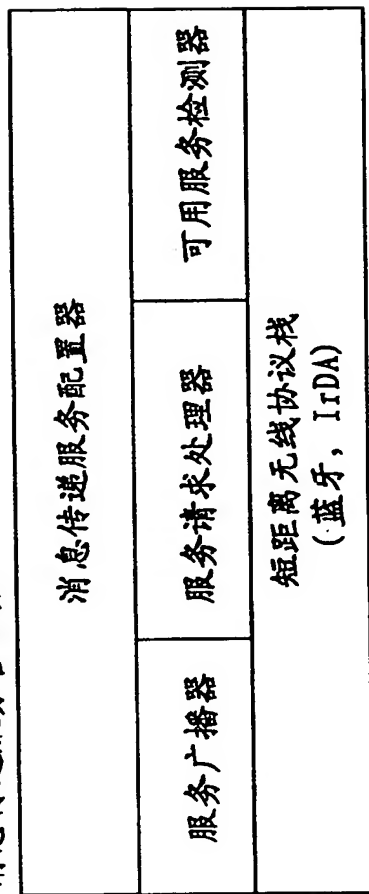 消息传递服务配置器
服务广播器
服务请求处理器
可用服务检测器
短距离无线协议栈
(蓝牙, IrDA)